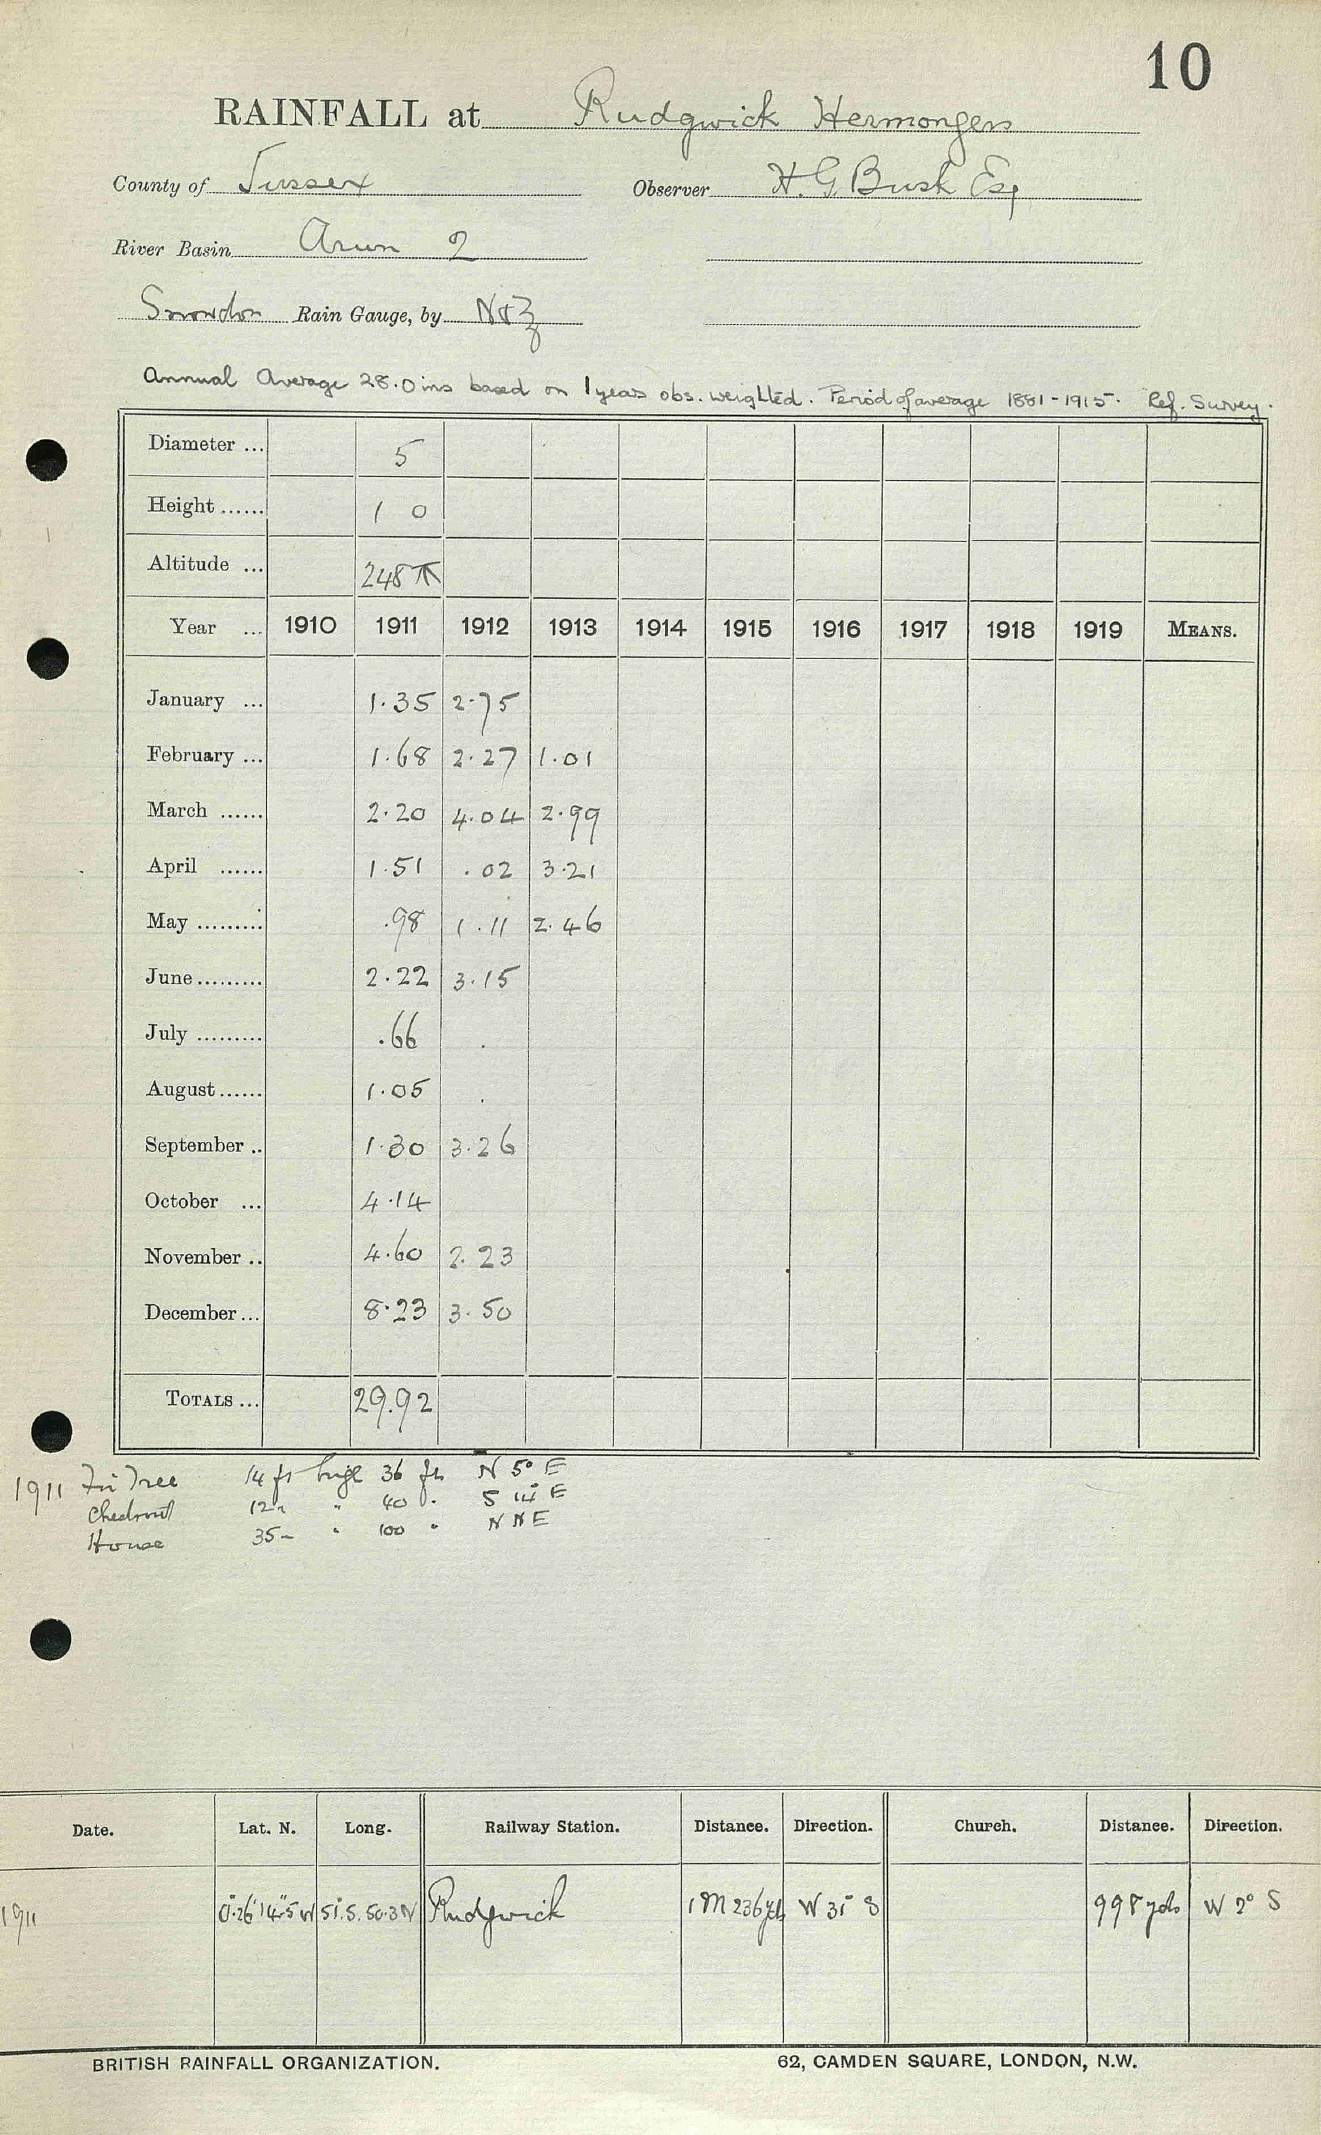 10
RAINFALL at Rudgwick Hermongers
County of Sussex Observer H. G. Busk Esq
River Basin Arun 2
Snowdon Rain Gauge, by N&Z
Annual Average 28.0 ins based on 1 years obs. weighted. Period of average 1881-1915. Ref. Survey.
Diameter ... 5
Height ...... 1 0
Altitude ... 248
Year ... 1910 1911 1912 1913 1914 1915 1916 1917 1918 1919 MEANS.
January ... 1.35 2.75
February ... 1.68 2.27 1.01
March ...... 2.20 4.04 2.99
April ...... 1.51 .02 3.21
May ......... .98 1.11 2.46
June ......... 2.22 3.15
July ......... .66 .
August ...... 1.05 .
September .. 1.30 3.26
October ... 4.14
November .. 4.60 2.23
December ... 8.23 3.50
TOTALS ... 29.92
1911 Fir Tree 14 ft high 36 ft N 5° E
12 " " 40 " S 14° E
House 35 " " 100 " N N E
Date. Lat. N. Long. Railway Station. Distance. Direction. Church. Distance. Direction.
1911 0°.26'14".5 W 51°.5.50.3 N Rudgwick 1 M 236 yds W 31° S 998 yds W 2° S
BRITISH RAINFALL ORGANIZATION. 62, CAMDEN SQUARE, LONDON, N.W.